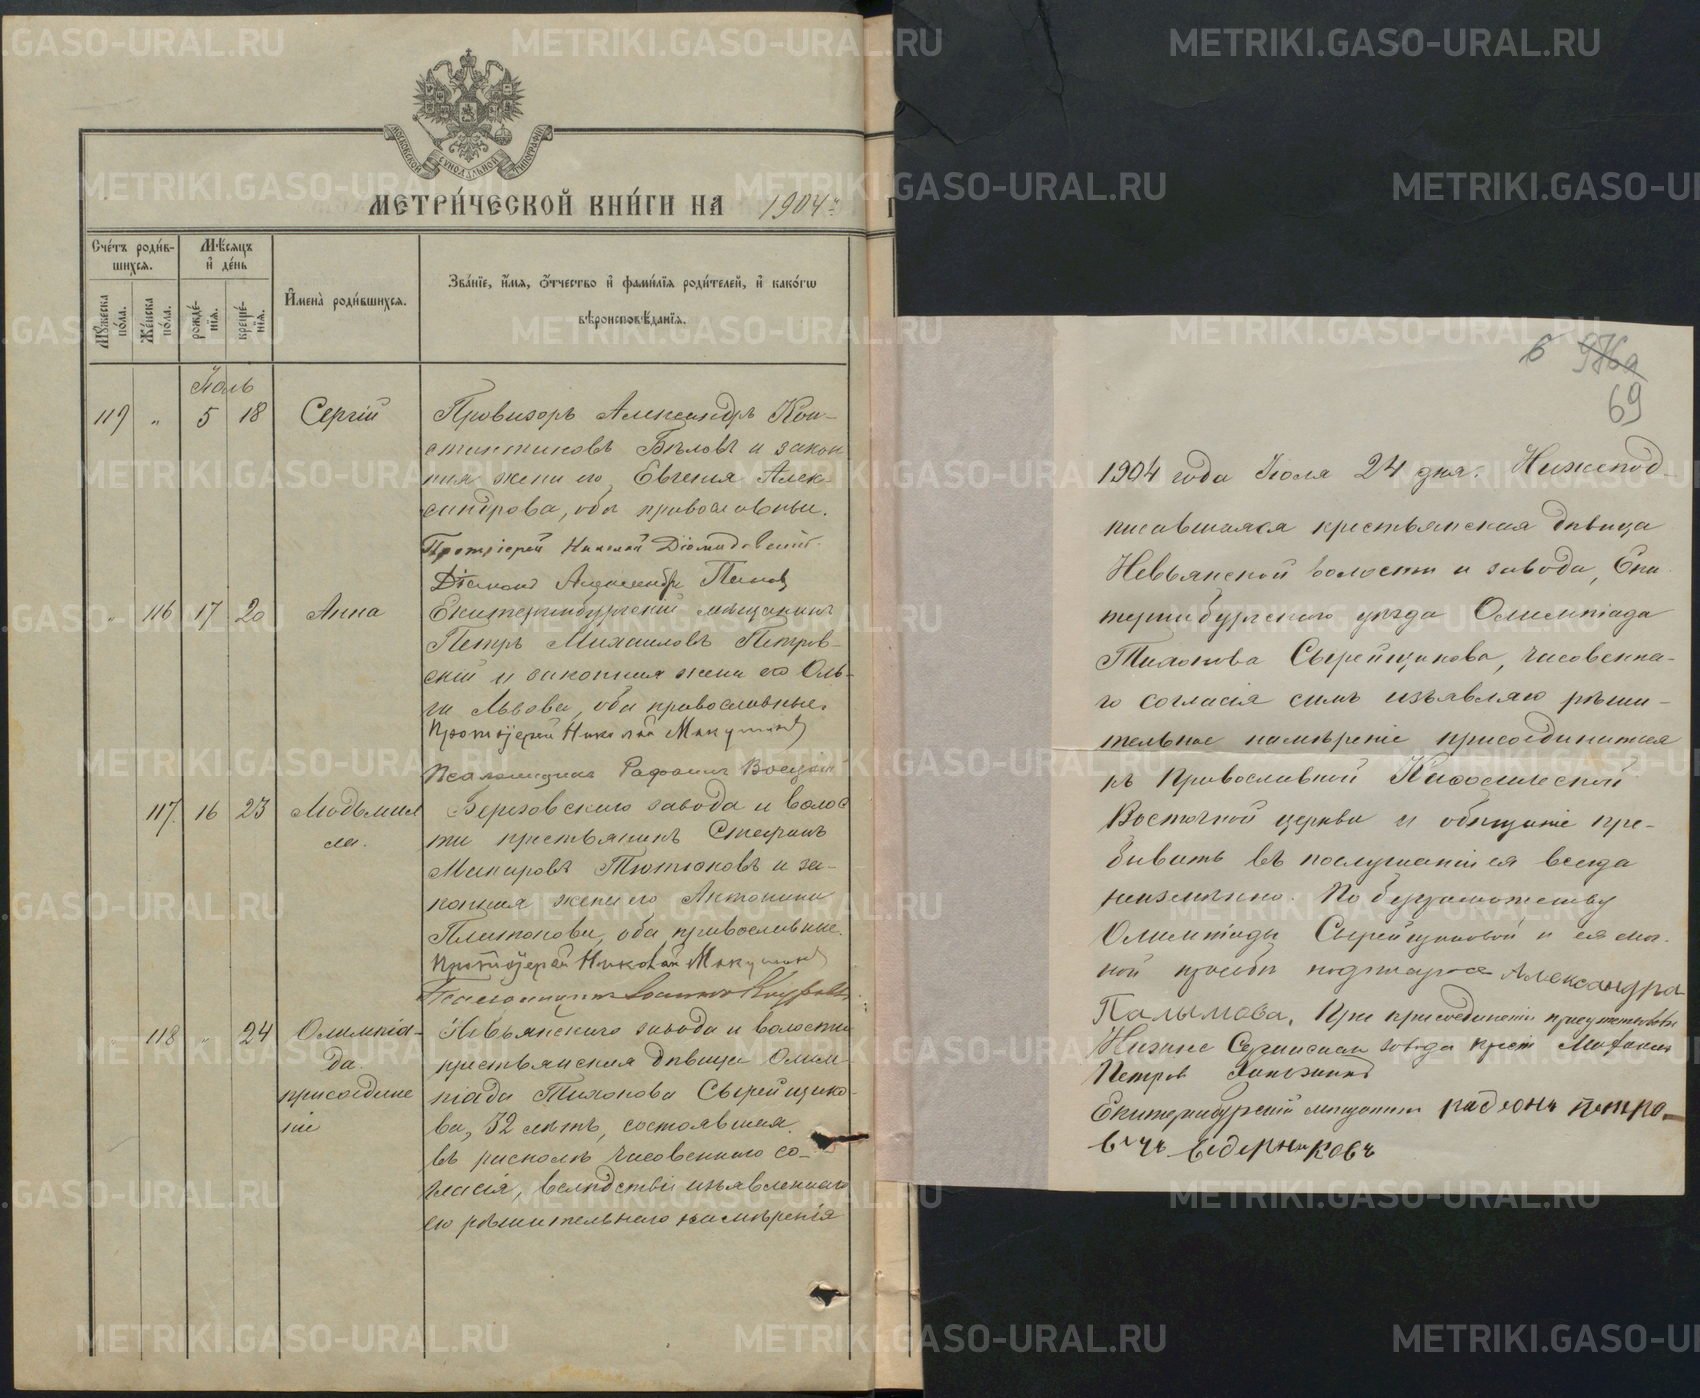 МЕТРИ́ЧЕСКОЙ КНИ́ГИ НА 1904 г.
Сче́тъ роди́в-
шихсѧ.
Мѣ́сѧцъ
и҆ де́нь
И҆мена̀ роди́вшихсѧ.
Зва́нїе, и҆́мѧ, ѻ҆́тчество и҆ фами́лїѧ роди́телей, и҆ како́гѡ
вѣроисповѣ́данїѧ.
Мꙋ́жеска
по́ла.
Же́нска
по́ла.
рожде́-
нїѧ.
креще́-
нїѧ.
Іюль
119 „ 5 18 Сергій Провизоръ Александръ Кон-
стантиновъ Бѣловъ и закон
ная жена его Евгенія Алек-
сандрова, оба православные.
Протоіерей Николай Діомидовскій.
Діаконъ Александръ Попов
„ 116 17 20 Анна Екатеринбургскій мѣщанинъ
Петръ Михаиловъ Петров-
скій и законная жена его Оль-
га Львова, оба православные.
Протоіерей Николай
Псаломщикъ
117. 16 23 Людьмил Березовскаго завода и волос
ла. ти крестьянинъ Стефанъ
Макаровъ Тютюковъ и за-
конная жена его Антонина
Платонова, оба православные.
Протоіерей Николай
118 „ 24 Олимпіа- Невьянскаго завода и волости
да. крестьянская дѣвица Олим
присоедине піада Тихонова Сырейщико-
ніе ва, 32 лѣтъ, состоявшая
въ расколѣ часовеннаго со-
гласія, вслѣдствіе изъявленнаго
ею рѣшительнаго намѣренія
6 976а
69
1904 года Іюля 24 дня. Нижепод-
писавшаяся крестьянская дѣвица
Невьянской волости и завода, Ека-
теринбургскаго уѣзда Олимпіада
Тихонова Сырейщикова, часовенна-
го согласія симъ изъявляю рѣши-
тельное намѣреніе присоединиться
къ Православной Кафолической
Восточной церкви и обѣщаніе пре-
бывать въ послушаніи ея всегда
неизмѣнно. По безграмотству
Олимпіады Сырейщиковой и ея лич-
ной просьбѣ подписался Александра
Палымова. При присоединеніи присутствовали
Нижне Сергинскаго завода крест
Петров
Екатеринбургскій мещанинъ радіонъ петро-
вичъ ведерниковъ
METRIKI.GASO-URAL.RU